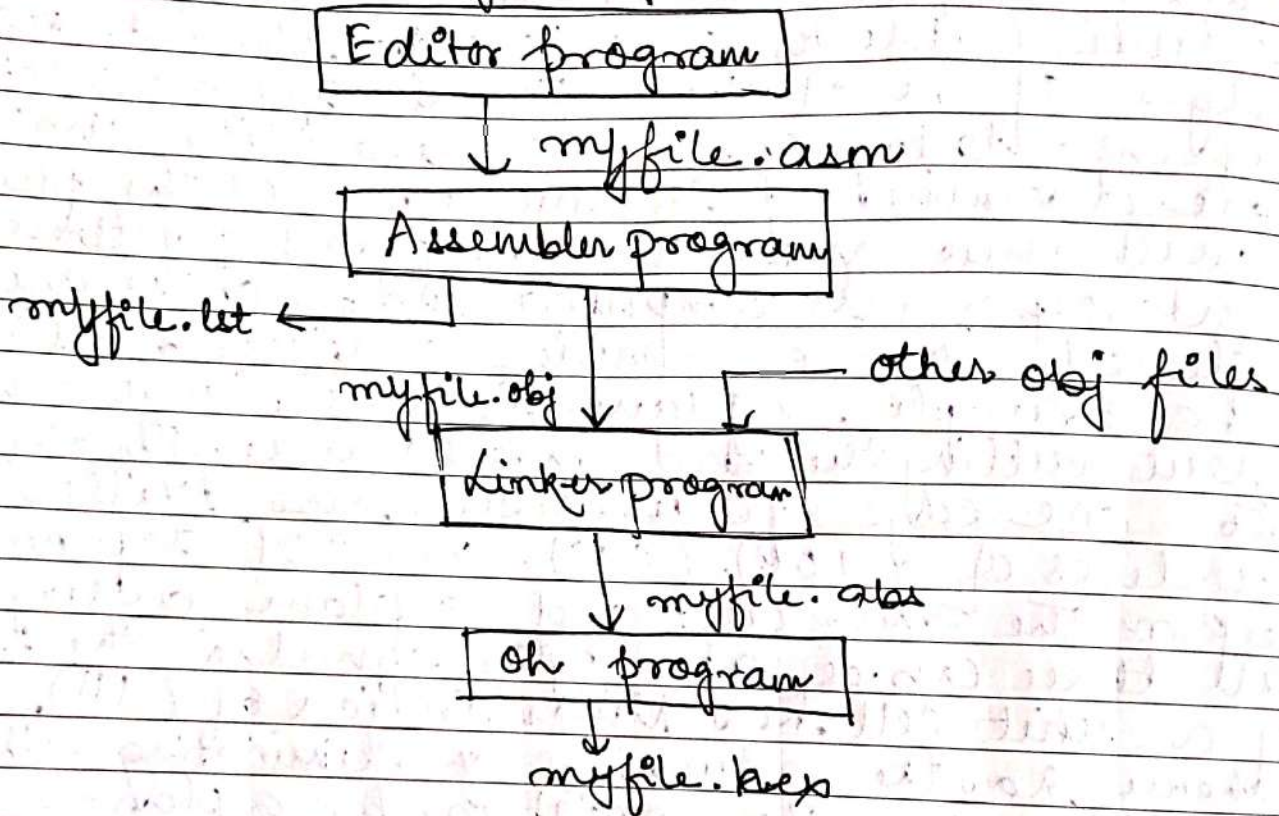 Editor program
myfile.asm
Assembler program
myfile.lst
other obj files
myfile.obj
Linker program
myfile.abs
oh program
myfile.hex